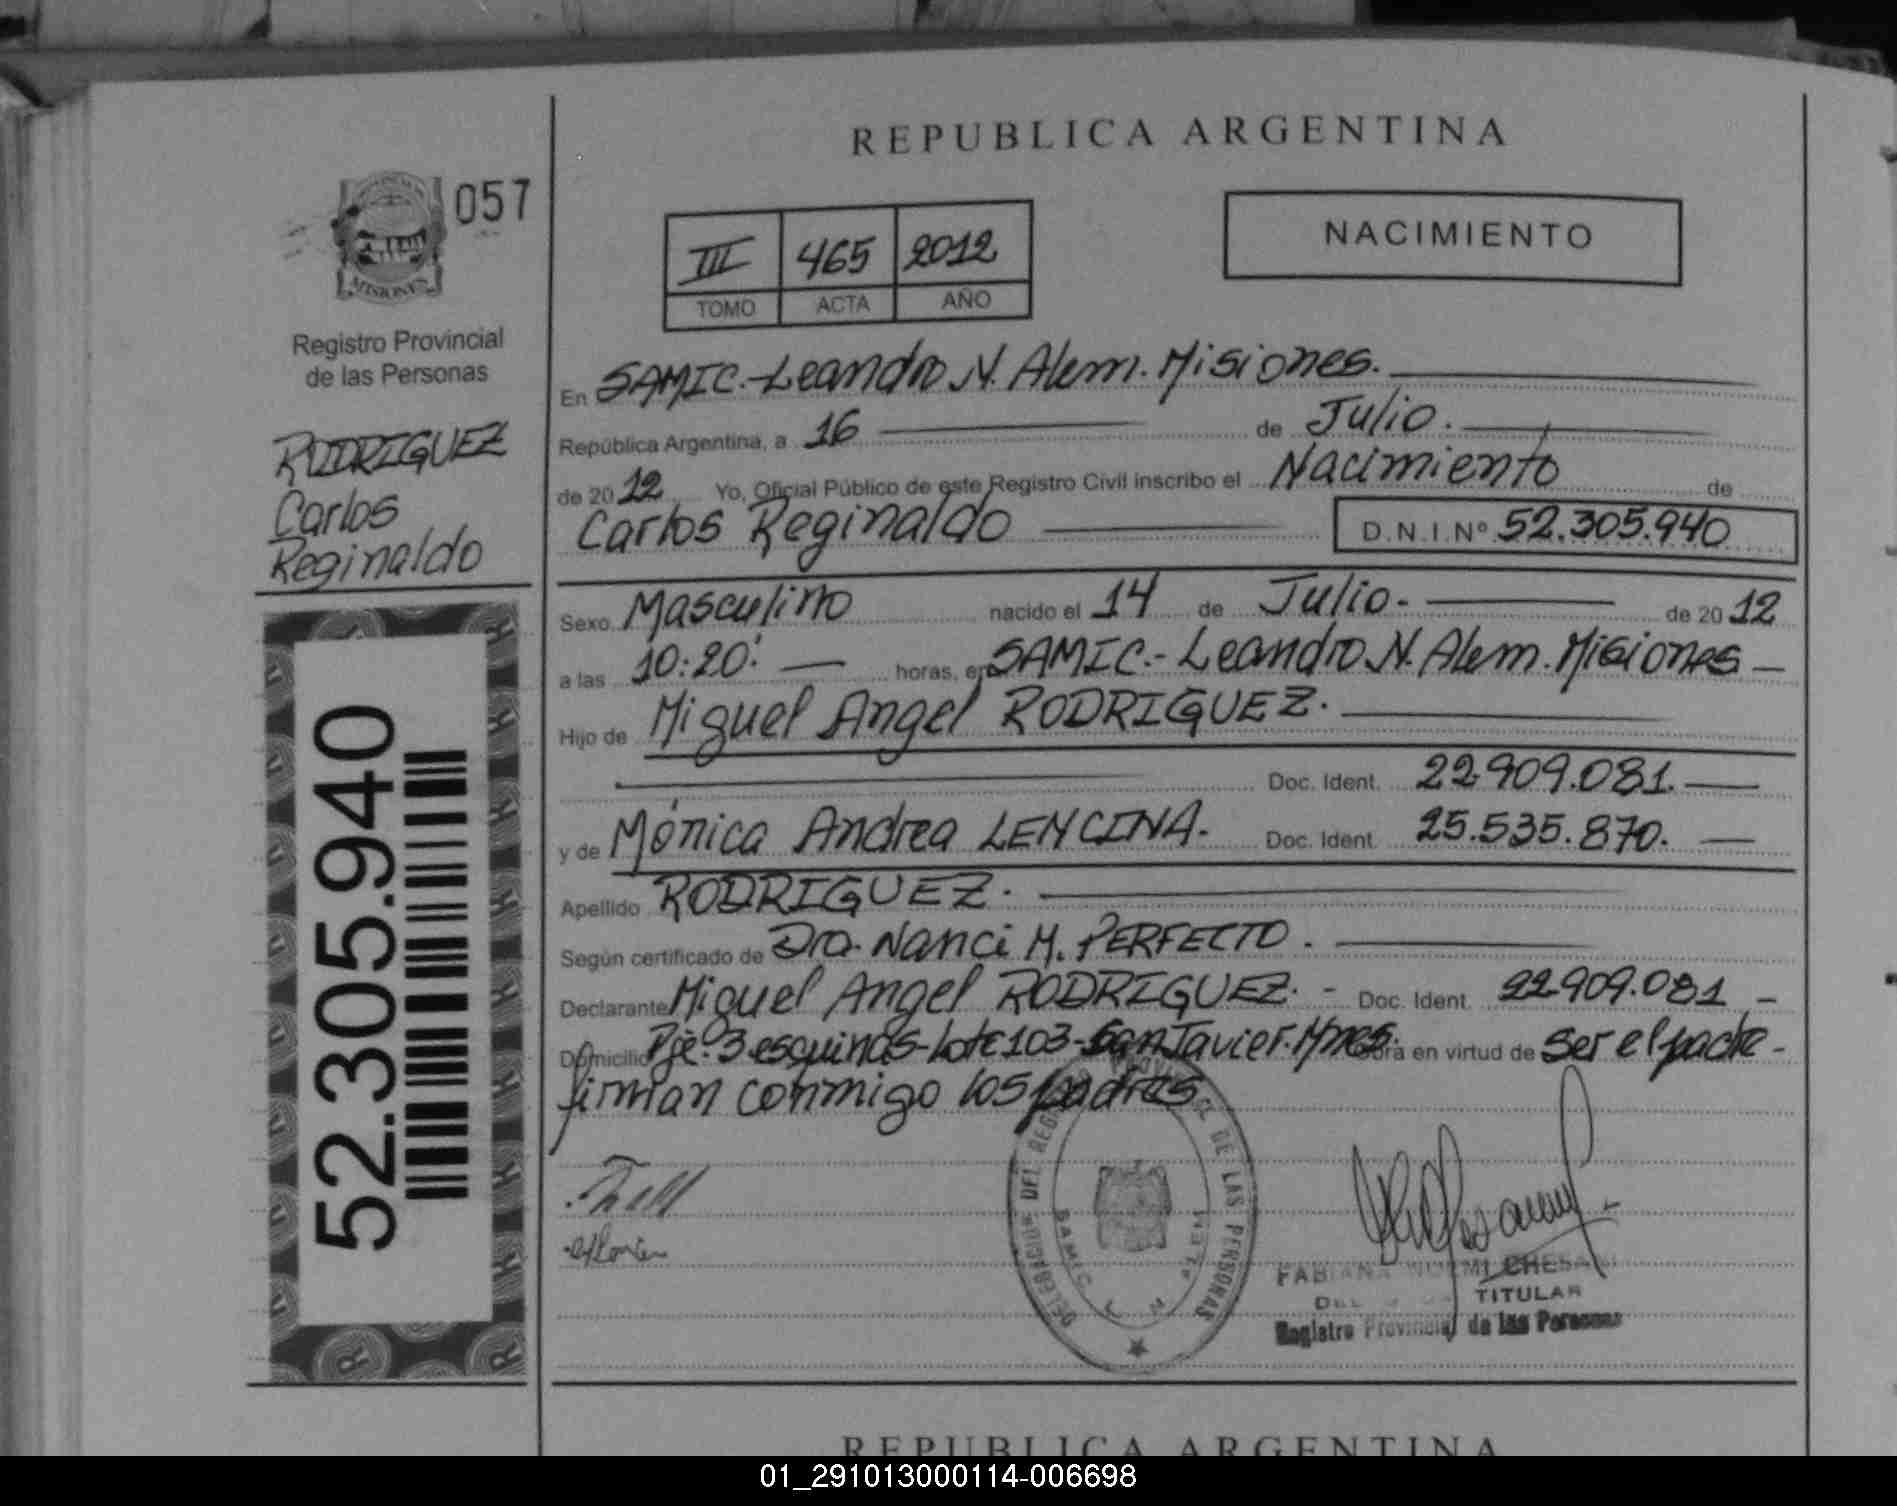 REPUBLICA ARGENTINA
057
MISIONES
Registro Provincial
de las Personas
RODRIGUEZ
Carlos
Reginaldo
52.305.940
III 465 2012
TOMO ACTA AÑO
NACIMIENTO
En SAMIC.-Leandro N. Alem. Misiones.
República Argentina, a 16 de Julio.
de 2012 Yo, Oficial Público de este Registro Civil inscribo el Nacimiento de
Carlos Reginaldo D.N.I.Nº 52.305.940
Sexo Masculino nacido el 14 de Julio. de 2012
a las 10:20' horas, en SAMIC.- Leandro N. Alem. Misiones
Hijo de Miguel Angel RODRIGUEZ.
Doc. Ident. 22.909.081.
y de Mónica Andrea LENCINA. Doc. Ident. 25.535.870.
Apellido RODRIGUEZ.
Según certificado de Dra. Nanci M. PERFECTO.
Declarante Miguel Angel RODRIGUEZ. - Doc. Ident. 22.909.081 -
Domicilio Pje. 3 esquinas-Lote 103-San Javier. Mnes. Obra en virtud de ser el padre -
firman conmigo los padres
DELEGACION DEL REGISTRO PROVINCIAL DE LAS PERSONAS
SAMIC L. N.
FABIANA NOEMI CHESANI
TITULAR
Registro Provincial de las Personas
REPUBLICA ARGENTINA
01_291013000114-006698